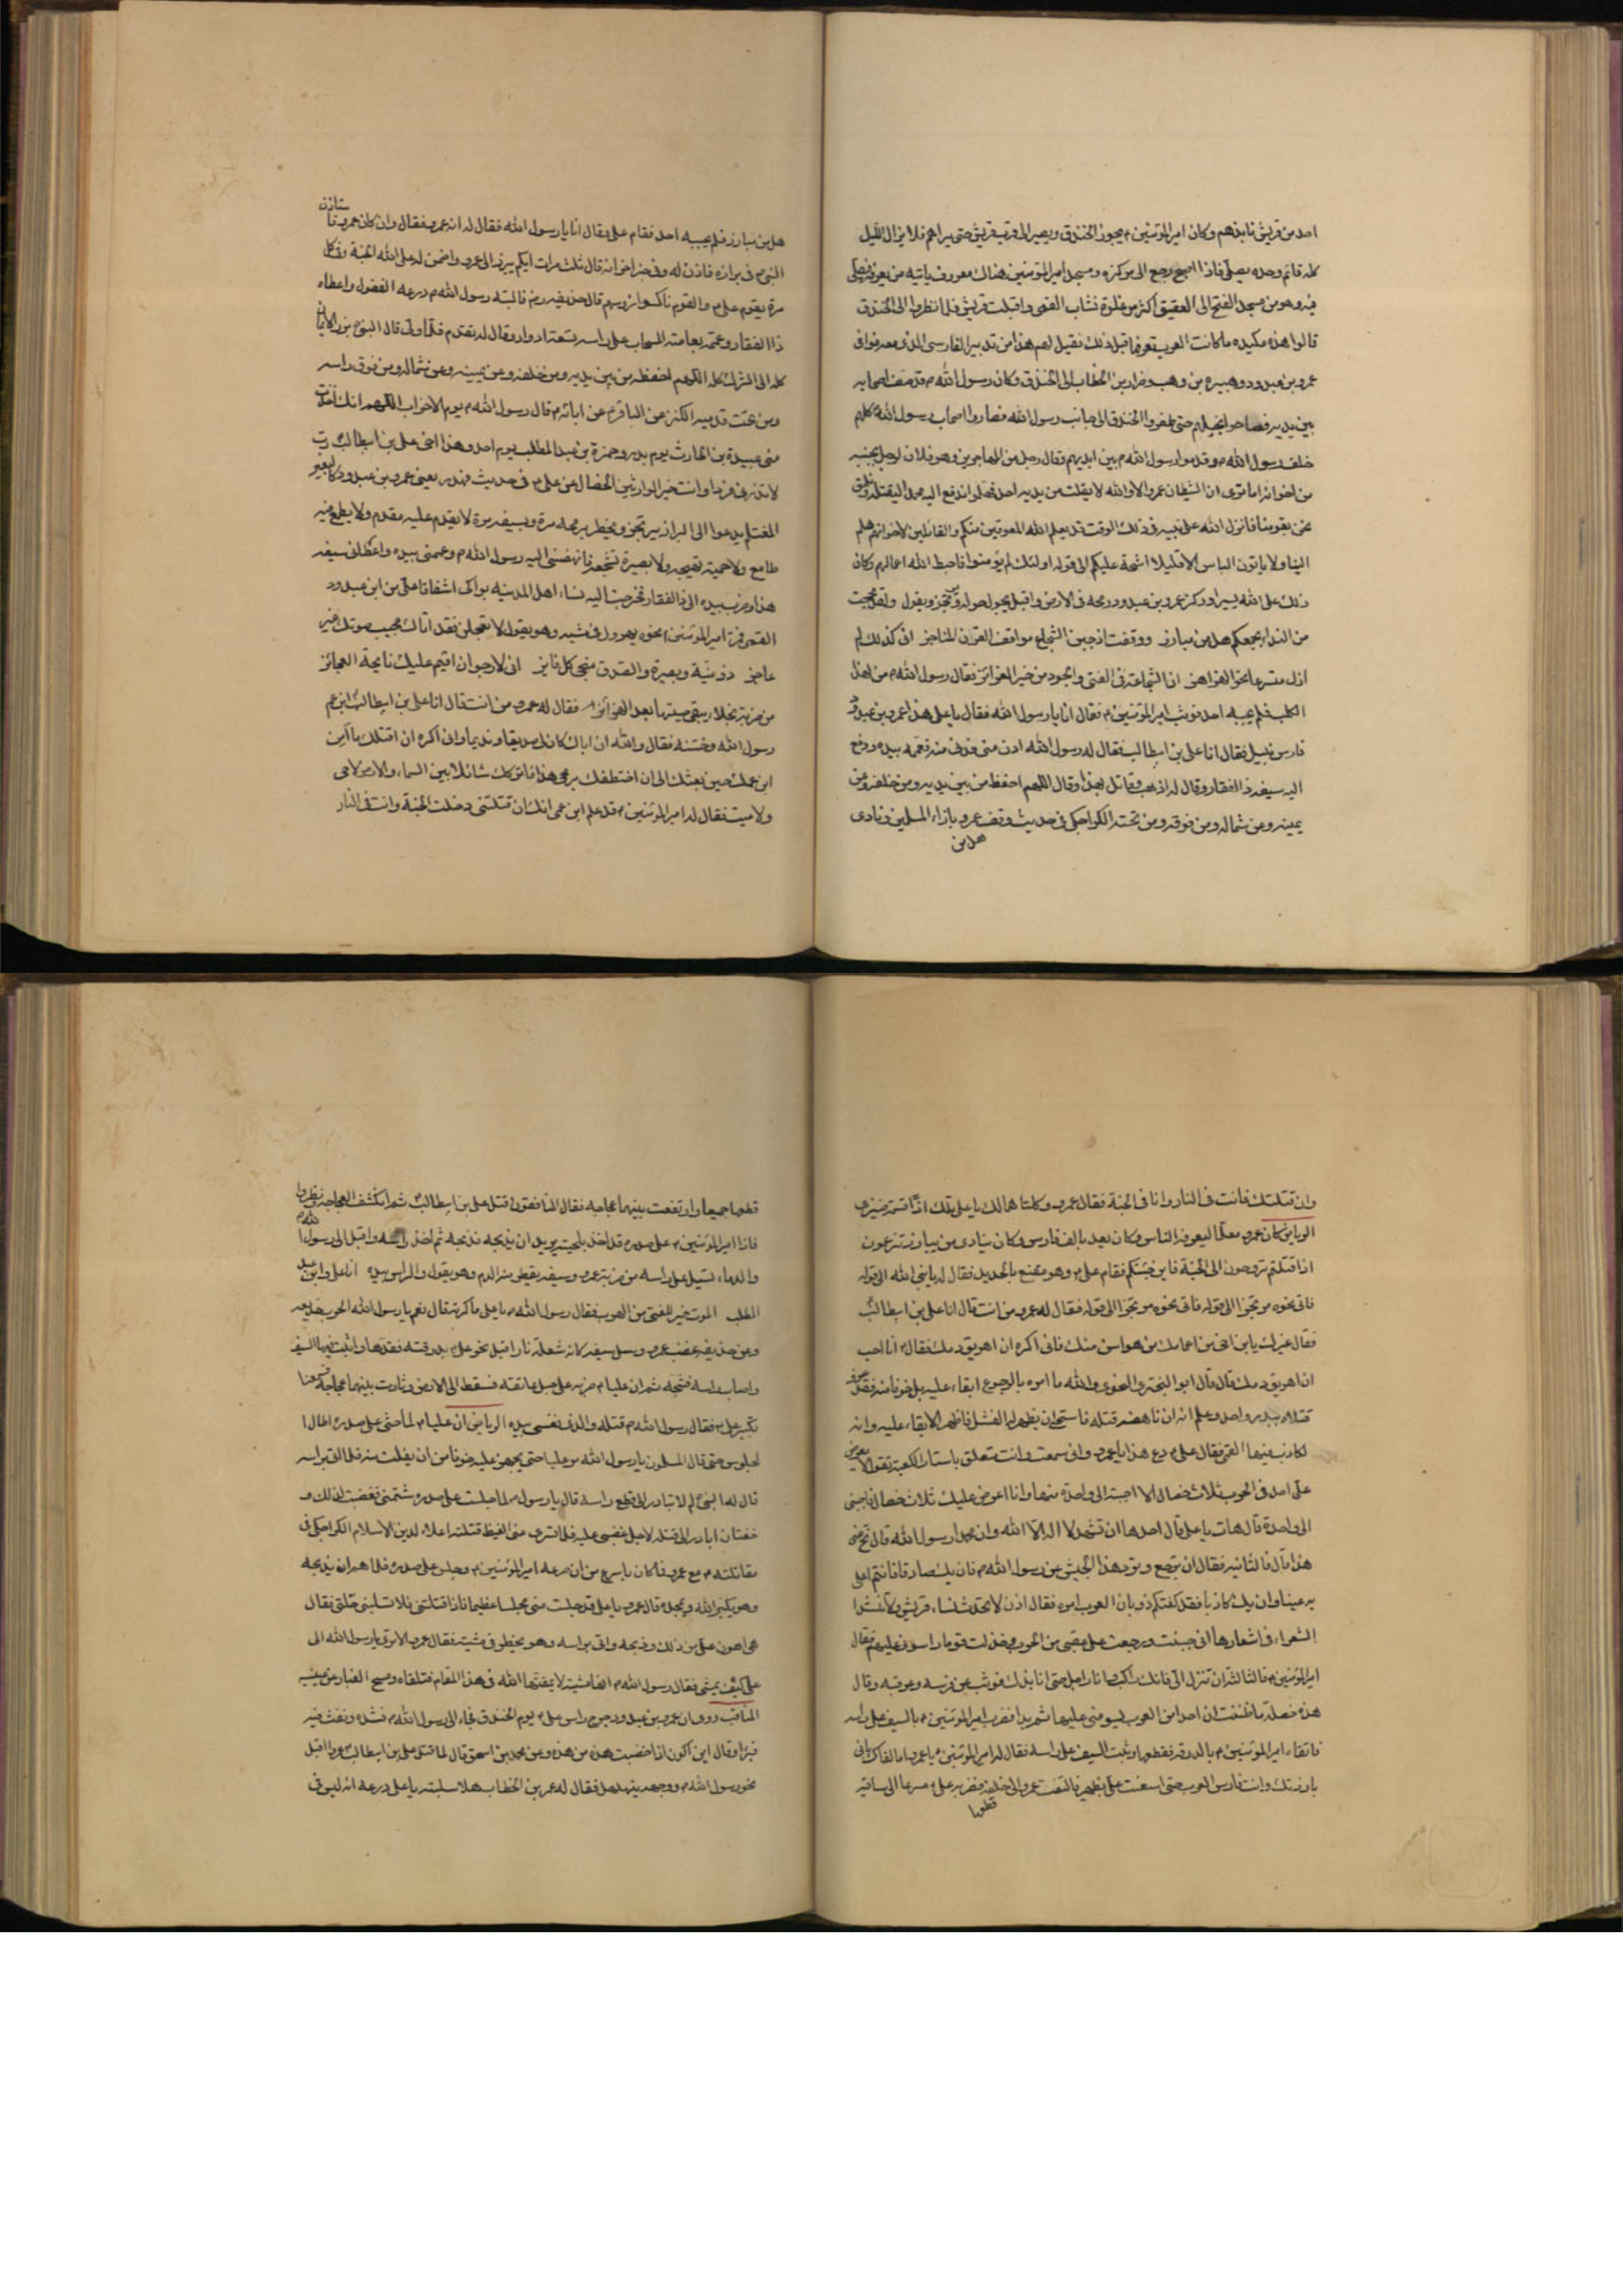 احد من قريش نابذهم وكان امير المؤمنين ع يجوز الخندق ويصير الى قرب قريش حتى يراهم فلا يزال الليل
كله قائم وحده يصلى فاذا اصبح رجع الى مركزه ومسجد امير المؤمنين هناك معروف ياتيه من يعرفه فيصلى
فيه وهو من مسجد الفتح الى العقيق اكثر من غلوة نشاب القصى واقبلت قريش فلما نظروا الى الخندق
قالوا هذه مكيده ما كانت العرب تعرفها قبل ذلك فقيل لهم هذا من تدبير الفارسى الذى معه فوافى
عمرو بن عبد ود وهبيرة بن وهب وضرار بن الخطاب الى الخندق وكان رسول الله ص قد صف اصحابه
بين يديه فصاحوا بخيلهم حتى طفروا الخندق الى جانب رسول الله فصاروا اصحاب رسول الله ص كلهم
خلف رسول الله ص وقدموا رسول الله ص بين ايديهم وقال رجل من المهاجرين وهو فلان لرجل بجنبه
من اخوانه اما ترى ان الشيطان عمرو الا والله لا يفلت من يديه احد فهلموا ندفع اليه محمدا ليقتله ونلحق
نحن بقومنا فانزل الله على نبيه فى ذلك الوقت قد يعلم الله المعوقين منكم والقائلين لاخوانهم هلم
الينا ولا ياتون الباس الا قليلا اشحة عليكم الى قوله اولئك لم يؤمنوا فاحبط الله اعمالهم وكان
ذلك على الله يسيرا وركز عمرو بن عبد ود رمحه فى الارض واقبل يجول حوله ويرتجز ويقول ولقد بححت
من النداء بجمعكم هل من مبارز ووقفت اذ جبن الشجاع مواقف القرن المناجز انى كذلك لم
ازل متسرعا نحو الهزاهز ان الشجاعة فى الفتى والجود من خير الغرائز فقال رسول الله ص من لهذا
الكلب فلم يجبه احد فوثب امير المؤمنين ع فقال انا يا رسول الله فقال يا على هذا عمرو بن عبد ود
فارس يليل فقال انا على بن ابيطالب فقال له رسول الله ادن منى فدنى منه فعممه بيده ودفع
اليه سيفه ذا الفقار وقال له اذهب وقاتل بهذا وقال اللهم احفظه من بين يديه ومن خلفه وعن
يمينه وعن شماله ومن فوقه ومن تحته الكراجكى فى حديث وقف عمرو بازاء المسلمين ونادى
هل من
هل من مبارز فلم يجبه احد فقام على وقال انا يا رسول الله فقال له انه عمرو فقال وان كان عمرو فا
ستاذن
النبى ص فى برازه فاذن له وفى خبر اخر انه قال ثلث مرات ايكم يبرز الى عمرو واضمن له على الله الجنة وفى كل
مرة يقوم على ع والقوم ناكسوا رؤسهم قال حذيفه رض فالبسه رسول الله ص درعه الفضول واعطاه
ذا الفقار وعممه بعمامته السحاب على راسه تسعة ادوار وقال له تقدم فلما ولى قال النبى ص برز الايمان
كله الى الشرك كله اللهم احفظه من بين يديه ومن خلفه وعن يمينه وعن شماله ومن فوق راسه
ومن تحت قدميه الكنز عن الباقر ع عن ابائه ع قال رسول الله ص يوم الاحزاب اللهم انك اخذت
منى عبيدة بن الحارث يوم بدر وحمزة بن عبد المطلب يوم احد وهذا اخى على بن ابيطالب رب
لا تذرنى فردا وانت خير الوارثين الخصال عن على ع فى حديث يعنى عمرو بن عبد ود كالبعير
المغتلم يدعوا الى البراز يرتجز ويخطر برمحه مرة وبسيفه مرة لا يقدم عليه مقدم ولا يطمع فيه
طامع ولا حمية تهيجه ولا بصيرة تشجعه فانهضنى اليه رسول الله ص وعممنى بيده واعطانى سيفه
هذا وضرب بيده الى ذى الفقار فخرجت اليه نساء اهل المدينه بواكى اشفاقا على من ابن عبد ود
القمى فمر امير المؤمنين ع نحوه يهرول فى مشيه وهو يقول لا تعجلن فقد اتاك مجيب صوتك غير
عاجز ذو نيّة وبصيرة والصدق منجى كل فايز انى لارجو ان اقيم عليك نايحة الجنائز
من ضربة نجلاء يبقى صيتها بعد الهزائز فقال له عمرو من انت فقال انا على بن ابيطالب ابن عم
رسول الله وختنه فقال والله ان اباك كان لى صديقا ونديما وانى اكره ان اقتلك ما آمن
ابن عمك حين بعثك الى ان اختطفك برمحى هذا فاتركك شائلا بين السماء والارض لا حى
ولا ميت فقال له امير المؤمنين ع قد علم ابن عمى انك ان قتلتنى دخلت الجنة وانت فى النار
وان قتلتك فانت فى النار وانا فى الجنة فقال عمرو وكلتاهما لك يا على تلك اذا قسمة ضيزى
الرياض كان عمرو معلما ليعرفه الناس وكان يعد بالف فارس وكان ينادى من يبارز تزعمون
اذا قتلتم تروحون الى الجنة فاين جنتكم فقام على ع وهو مقنع بالحديد فقال له يا نبى الله الى قوله
فاتى نحوه مرتجزا الى قوله فقال له عمرو من انت قال انا على بن ابيطالب
فقال غيرك يا بن اخى من اعمامك من هو اسن منك فانى اكره ان اهريق دمك فقال ع انا احب
ان اهريق دمك قال قال ابو البخترى النحوى والله ما امره بالرجوع ابقاء عليه بل خوفا منه فقد عرف
قتلاه ببدر واحد وعلم انه ان ناهضه قتله فاستحى ان يظهر له الفشل فاظهر الابقاء عليه وانه
لكاذب فيهما القمى فقال على ع دع هذا يا عمرو وانى سمعت وانت متعلق باستار الكعبة تقول لا يعرض
على احد فى الحرب ثلاث خصال الا اجبته الى واحدة منها وانا اعرض عليك ثلاث خصال فاجبنى
الى واحدة قال هات يا على قال احدها ان تشهد لا اله الا الله وان محمدا رسول الله قال نح عنى
هذا قال فالثانية فقال ان ترجع وترد هذا الجيش عن رسول الله ص فان يك صادقا فانتم اعلى
به عينا وان يك كاذبا فقد كفتكم ذوبان العرب امره فقال اذن لا تحدث نساء قريش ولا تنشد
الشعراء فى اشعارها انى جبنت ورجعت على عقبى من الحرب وخذلت قوما راسونى عليهم فقال
امير المؤمنين ع فالثالثة ان تنزل الى فانك راكب وانا راجل حتى انابذك فوثب عن فرسه وعرقبه وقال
هذه خصلة ما ظننت ان احدا من العرب يسومنى عليها ثم بدا فضرب امير المؤمنين ع بالسيف على راسه
فاتقاه امير المؤمنين ع بالدرقة فقطعها وثبت السيف على راسه فقال له امير المؤمنين ع يا عمرو اما كفاك بانى
بارزتك وانت فارس العرب حتى استعنت على بظهير فالتفت عمرو الى خلفه فضربه على ع مسرعا الى ساقيه
قطعهما
قطعهما جميعا وارتفعت بينهما عجاجه فقال المنافقون قتل على بن ابيطالب ثم انكشف العجاجة ونظروا
فاذا امير المؤمنين ع على صدره قد اخذ بلحيته يريد ان يذبحه فذبحه ثم اخذ راسه واقبل الى رسول ا
لله ص
والدماء تسيل على راسه من ضربة عمرو وسيفه يقطر منه الدم وهو يقول والراس بيده انا على وابن عبد
المطلب الموت خير للفتى من الهرب فقال رسول الله ص يا على ماكرته قال نعم يا رسول الله الحرب خديعه
وعن حذيفه غضب عمرو وسل سيفه كانه شعلة نار اقبل نحو على ع بدرقته فقدها واثبت فيها السيف
واصاب راسه فشجه ثم ان عليا ع ضربه على حبل عاتقه فسقط الى الارض وثارت بينهما عجاجة فسمعنا
تكبير على ع فقال رسول الله ص قتله والذى نفسى بيده الرياض ان عليا ع لما جثى على صدره اطال ا
لجلوس حتى قال المسلمون يا رسول الله مر عليا حتى يجهز عليه خوفا من ان يفلت منه فلما القى براسه
قال له النبى ص لم لا تبادر الى قطع راسه قال يا رسول الله لما جلست على صدره شتمنى فغضبت لذلك و
خفت ان ابادر الى قتله لاجل غضبى عليه فلما سرى عنى الغيظ قتلته اعلاء لدين الاسلام الكراجكى فى
مقاتلته ع مع عمرو فما كان باسرع من ان صرعه امير المؤمنين ع وجلس على صدره فلما هم ان يذبحه
وهو يكبر الله ويمجده قال عمرو يا على قد جلست منى مجلسا عظيما فاذا قتلتنى فلا تسلبنى حلتى فقال
هى اهون على من ذلك وذبحه واتى براسه وهو يخطر فى مشيته فقال عمر الا ترى يا رسول الله الى
على كيف يمشى فقال رسول الله ص انها مشية لا يمقتها الله فى هذا المقام فتلقاه ومسح الغبار عن عينيه
المناقب روى ان عمرو بن عبد ود جرح راس على ع يوم الخندق فجاء الى رسول الله ص فشده ونفث فيه
فبرا وقال اين اكون اذا خضبت هذه من هذه وعن محمد بن اسحق قال لما قتل على بن ابيطالب عمروا اقبل
نحو رسول الله ص ووجهه يتهلل فقال له عمر بن الخطاب هلا سلبته يا على درعه انه ليس فى